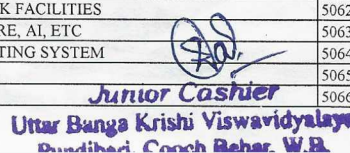 K FACILITIES 5062
RE, AI, ETC 5063
TING SYSTEM 5064
5065
5066
Junior Cashier
Uttar Banga Krishi Viswavidyalaya
Pundibari, Cooch Behar, W.B.